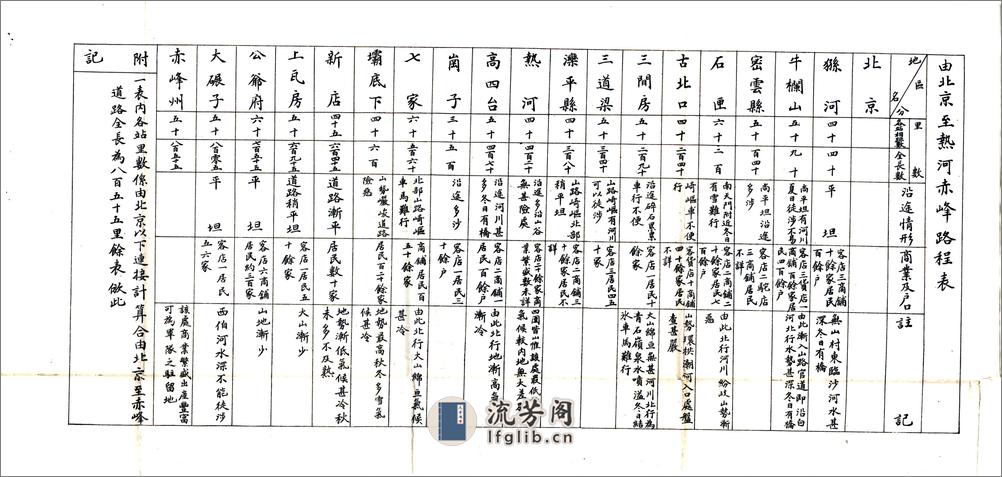 由北京至熱河赤峰路程表
地名 區分
里數
各站相距數 全長數
沿途情形
商業及戶口
註記
北京
孫河 四十 四十 平 客店三商鋪十餘家居民百餘戶 無山村東臨沙河水甚深冬日有橋
牛欄山 五十 九十 尚平坦有河川夏日徒涉不易 客店三貨店一商鋪百餘家居民四百餘戶 由此漸入山路官道即沿白河北行水勢甚深冬日有橋
密雲縣 五十 百四十 尚平坦沿途多沙 客店二駝店三商鋪居民不詳
石匣 六十 二百 南天門附近冬日有雪難行 客店二商鋪二十餘家居民七百餘戶 由此北行河川紛歧山勢漸惡
古北口 四十 二百四十 山路崎嶇車不便行 客貨店十商鋪四十餘家居民 山勢環拱潮河入口處盤查甚嚴
三間房 五十 二百九十 沿途碎石累累車行不便 客店一居民十餘家 大山綿亘無甚河川北行為青石嶺泉水噴溢冬日結冰車馬難行
三道梁 五十 三百四十 山路崎嶇有河川可以徒涉 客店三居民四五十家
灤平縣 四十 三百八十 山路崎嶇北部稍平坦 客店二商鋪二十餘家居民不詳
熱河 四十 四百二十 沿途多沿山谷無甚險處 客店二十餘家商業繁盛戶數未詳 四圍皆山惟該處最低氣候較內地無大差別
高四台 五十 四百七十 沿途河川甚多冬日有橋 客店一商鋪一居民百餘戶 由此北行地漸高氣漸冷
崗子 三十 五百 沿途多沙 客店一居民三十餘戶
七家 六十 五百六十 北部山路崎嶇車馬難行 商鋪居民百五十餘家 由此北行大山綿亘氣候甚冷
壩底下 四十 六百 山勢嚴峻道路險惡 客店二十餘家居民百二十餘家 地勢最高秋冬多雪氣候甚冷
新店 四十五 六百四十五 道路漸平 居民數十家 地勢漸低氣候甚冷秋禾多不及熟
上瓦房 五十 六百九十五 道路稍平坦 客店一居民五十餘家 大山漸少
公爺府 六十 七百五十五 平坦 客店六商鋪居民約三百家 山地漸少
大碾子 五十 八百零五 平坦 客店一居民五六家 西伯河水深不能徒涉
赤峰州 五十 八百五十五 平 該處商業繁盛出產豐富可為軍隊之駐留地
附記
一表內各站里數係由北京以下連接計算合由北京至赤峰道路全長為八百五十五里餘表倣此
流芳阁
lfglib.cn